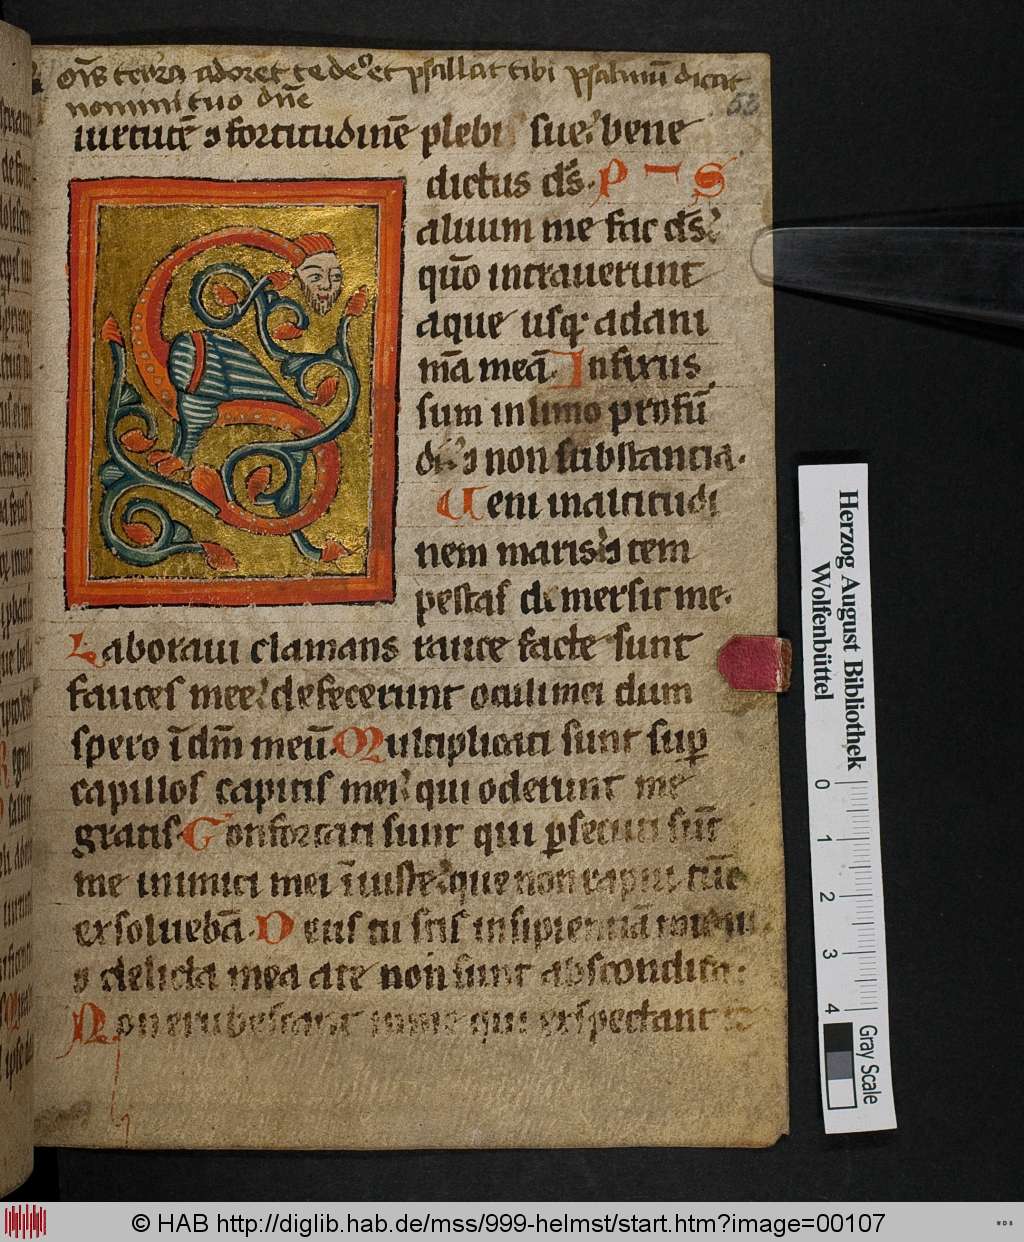 Om̄s terra adoret te deꝰ et psallat tibi psalmū dicat
nomini tuo dn̄e
53
uirtutē ⁊ fortitudinē plebi sue bene
dictus ds̄. P S
aluum me fac ds̄
qūo intrauerunt
aque usq; ad ani
mā meā. Infixus
sum in limo profū
di ⁊ non substancia.
Ueni in altitudi
nem maris ⁊ tem
pestas demersit me.
Laboraui clamans rauce facte sunt
fauces mee defecerunt oculi mei dum
spero ī dm̄ meū. Multiplicati sunt suꝑ
capillos capitis mei qui oderunt me
gratis. Confortati sunt qui ꝑsecuti sūt
me inimici mei īiuste que non rapui tūc
exsoluebā. Deus tu scis insipientiā meā
⁊ delicta mea a te non sunt abscondita.
Non erubescant in me qui exspectant te
Herzog August Bibliothek
Wolfenbüttel
0 1 2 3 4
Gray Scale
© HAB http://diglib.hab.de/mss/999-helmst/start.htm?image=00107